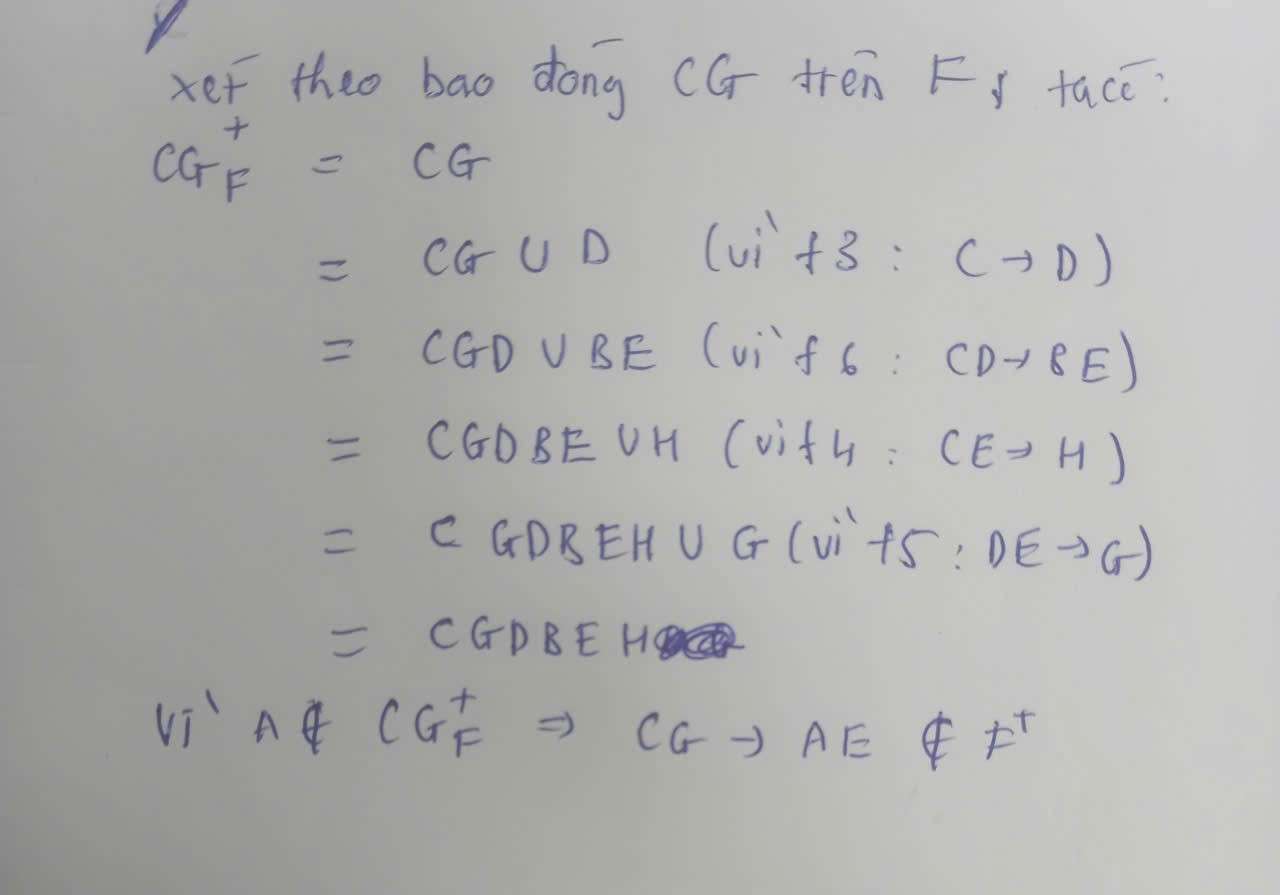 xét theo bao đóng CG trên F, ta có:
CG⁺F = CG
= CG U D (vì f3 : C → D)
= CGD U BE (vì f6 : CD → BE)
= CGDBE U H (vì f4 : CE → H)
= C GDBEH U G (vì f5 : DE → G)
= CGDBEH
Vì A ∉ CG⁺F ⇒ CG → AE ∉ F⁺